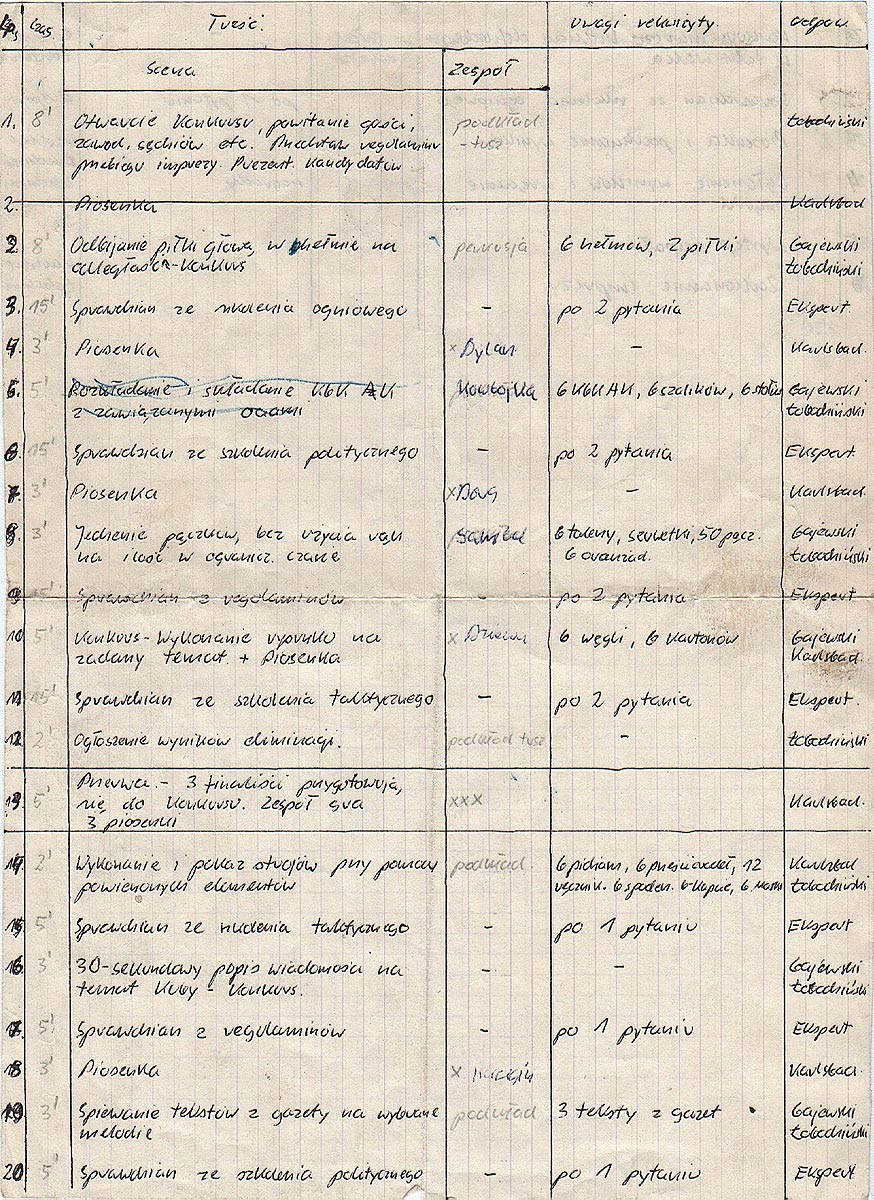 Lp. Czas. Treść. Uwagi rekwizyty. odpow.
Scena Zespół
1. 8' Otwarcie Konkursu, powitanie gości, podkład Łobodziński
zawod, sędziów etc. Przedstaw regulaminu - tusz
przebiegu imprezy. Prezent. kandydatów
2. Piosenka Karlsbad
2. 8' Odbijanie piłki głową, w hełmie na perkusja 6 hełmów, 2 piłki Gajewski
odległość - Konkurs Łobodziński
3. 15' Sprawdzian ze szkolenia ogniowego - po 2 pytania Ekspert
4. 3' Piosenka x Dylan - Karlsbad.
5. 5' Rozkładanie i składanie KbK AK 6 KbK AK, 6 szalików, 6 stołów Gajewski
z zawiązanymi oczami Łobodziński
6. 15' Sprawdzian ze szkolenia politycznego - po 2 pytania Ekspert
7. 3' Piosenka x - Karlsbad.
8. 3' Jedzenie pączków, bez użycia rąk 6 talerzy, serwetki, 50 pącz. Gajewski
na ilość w ogranicz. czasie 6 oranżad. Łobodziński
9. 15' Sprawdzian z regulaminów - po 2 pytania Ekspert
10 5' Konkurs - Wykonanie rysunku na x 6 węgli, 6 kartonów Gajewski
zadany temat. + Piosenka Karlsbad.
11. 15' Sprawdzian ze szkolenia taktycznego - po 2 pytania Ekspert.
12. 2' Ogłoszenie wyników eliminacji. podkład tusz - Łobodziński
13. 5' Przerwa. - 3 finaliści przygotowują,
się do Konkursu. Zespół gra xxx Karlsbad.
3 piosenki
14. 2' Wykonanie i pokaz strojów przy pomocy podkład. 6 piżam, 6 prześcieradeł, 12 Karlsbad
powierzonych elementów ręcznik. 6 spoden. 6 6 Łobodziński
15 5' Sprawdzian ze szkolenia taktycznego - po 1 pytaniu Ekspert
16. 3' 30-sekundowy popis wiadomości na - - Gajewski
temat Kuby - Konkurs. Łobodziński
17. 5' Sprawdzian z regulaminów - po 1 pytaniu Ekspert
18 3' Piosenka x Karlsbad.
19 3' Śpiewanie tekstów z gazety na wybrane podkład 3 teksty z gazet Gajewski
melodie Łobodziński
20 5' Sprawdzian ze szkolenia politycznego - po 1 pytaniu Ekspert